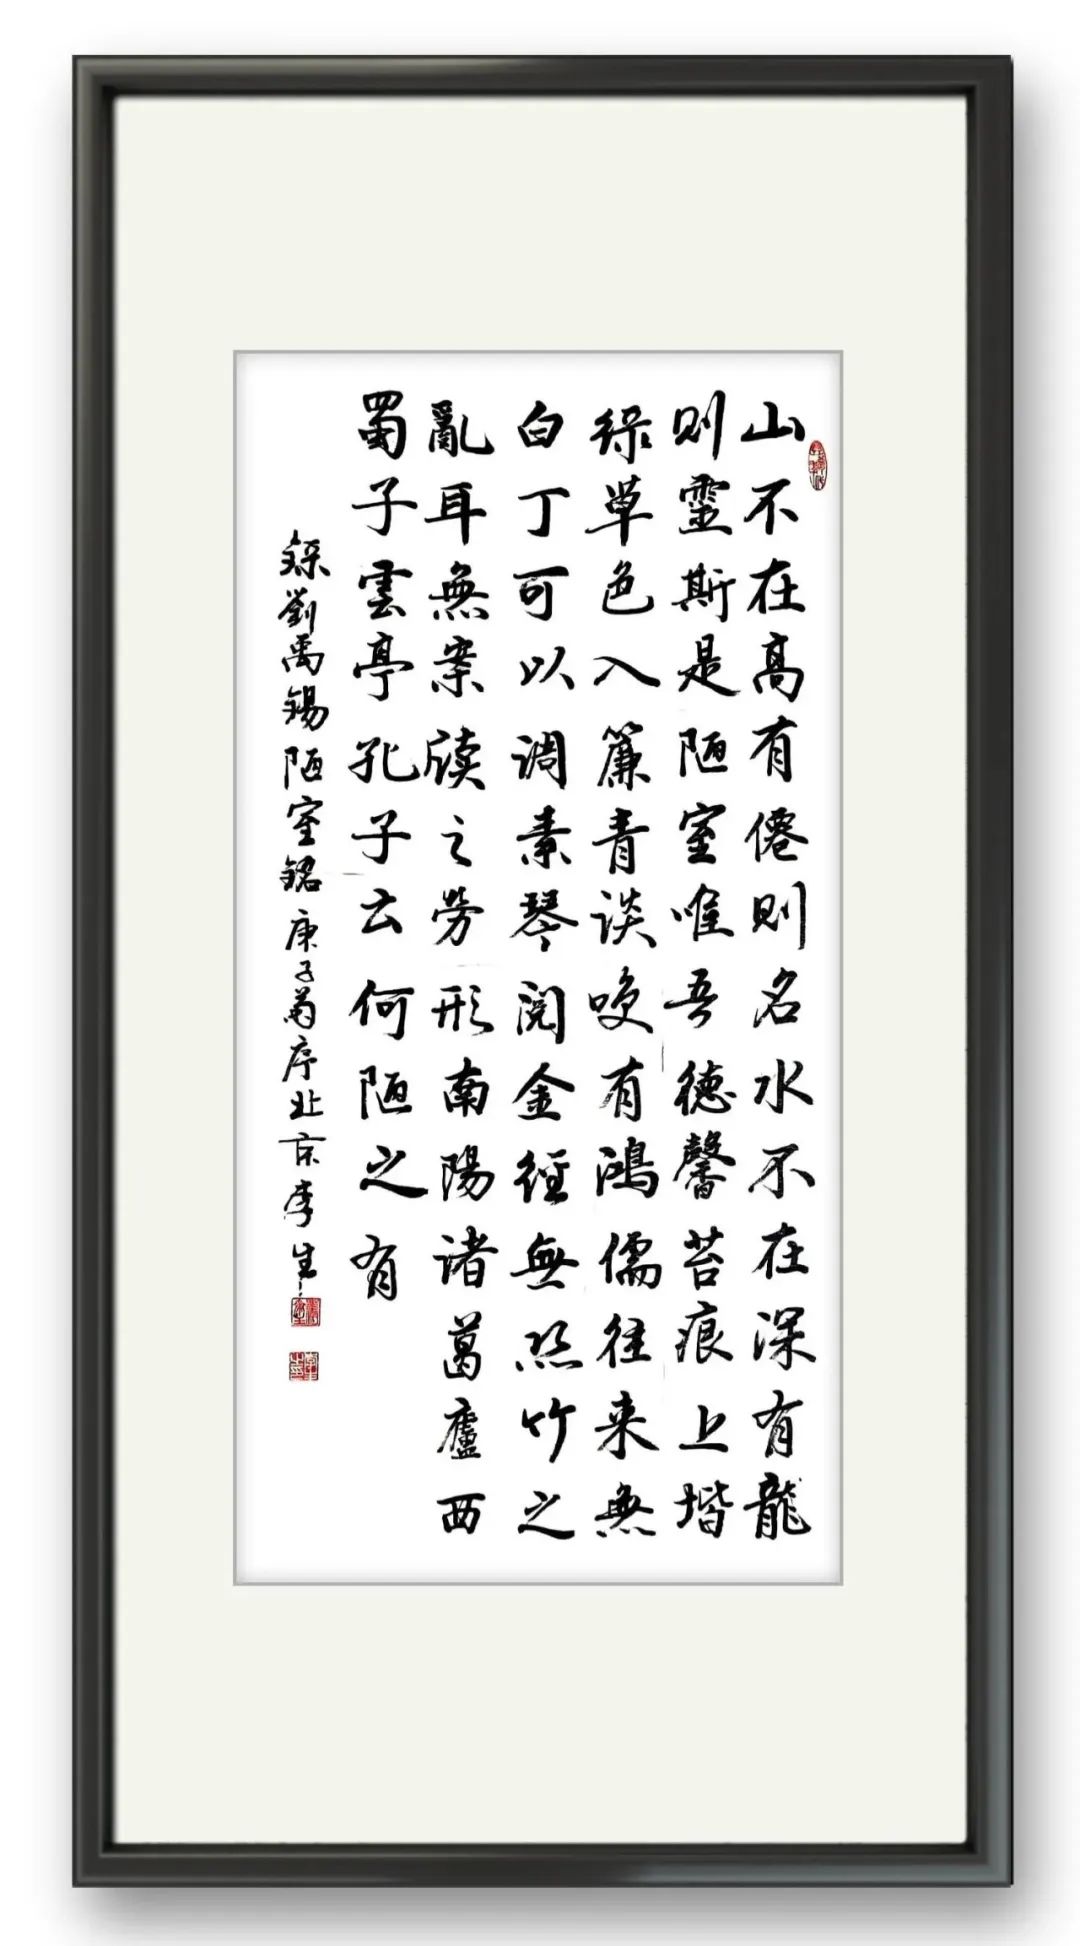 山不在高有僊則名水不在深有龍
則靈斯是陋室唯吾德馨苔痕上堦
绿草色入簾青談咲有鴻儒往来無
白丁可以調素琴閱金經無丝竹之
亂耳無案牘之勞形南陽諸葛廬西
蜀子雲亭孔子云何陋之有
録劉禹錫陋室銘庚子菊序北京李生